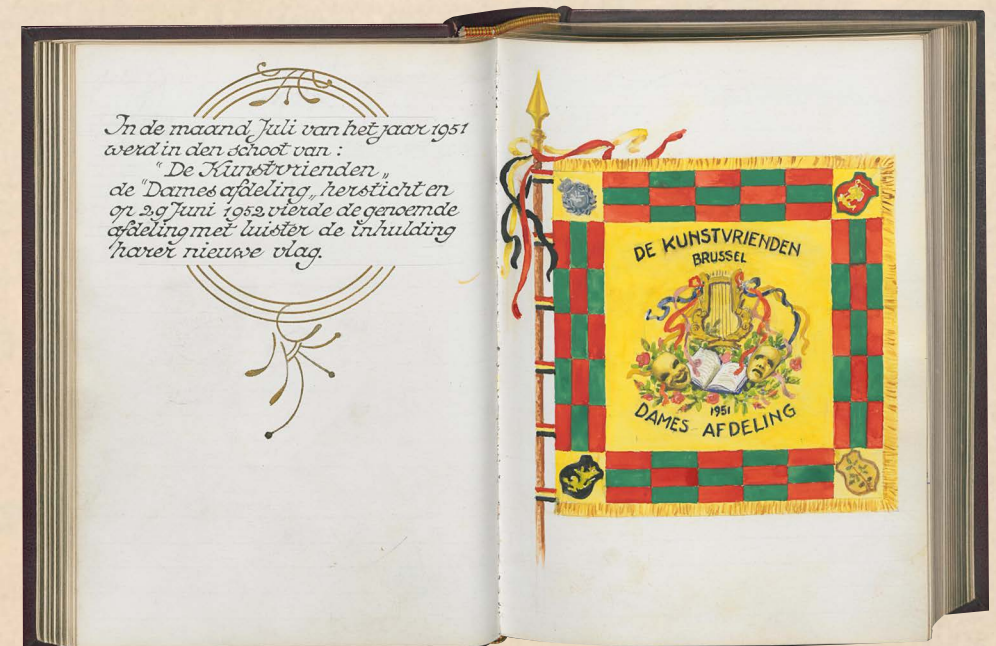 In de maand Juli van het jaar 1951
werd in den schoot van :
"De Kunstvrienden„
de "Dames afdeling„ hersticht en
op 29 Juni 1952 vierde de genoemde
afdeling met luister de inhulding
harer nieuwe vlag.
DE KUNSTVRIENDEN
BRUSSEL
1951
DAMES AFDELING